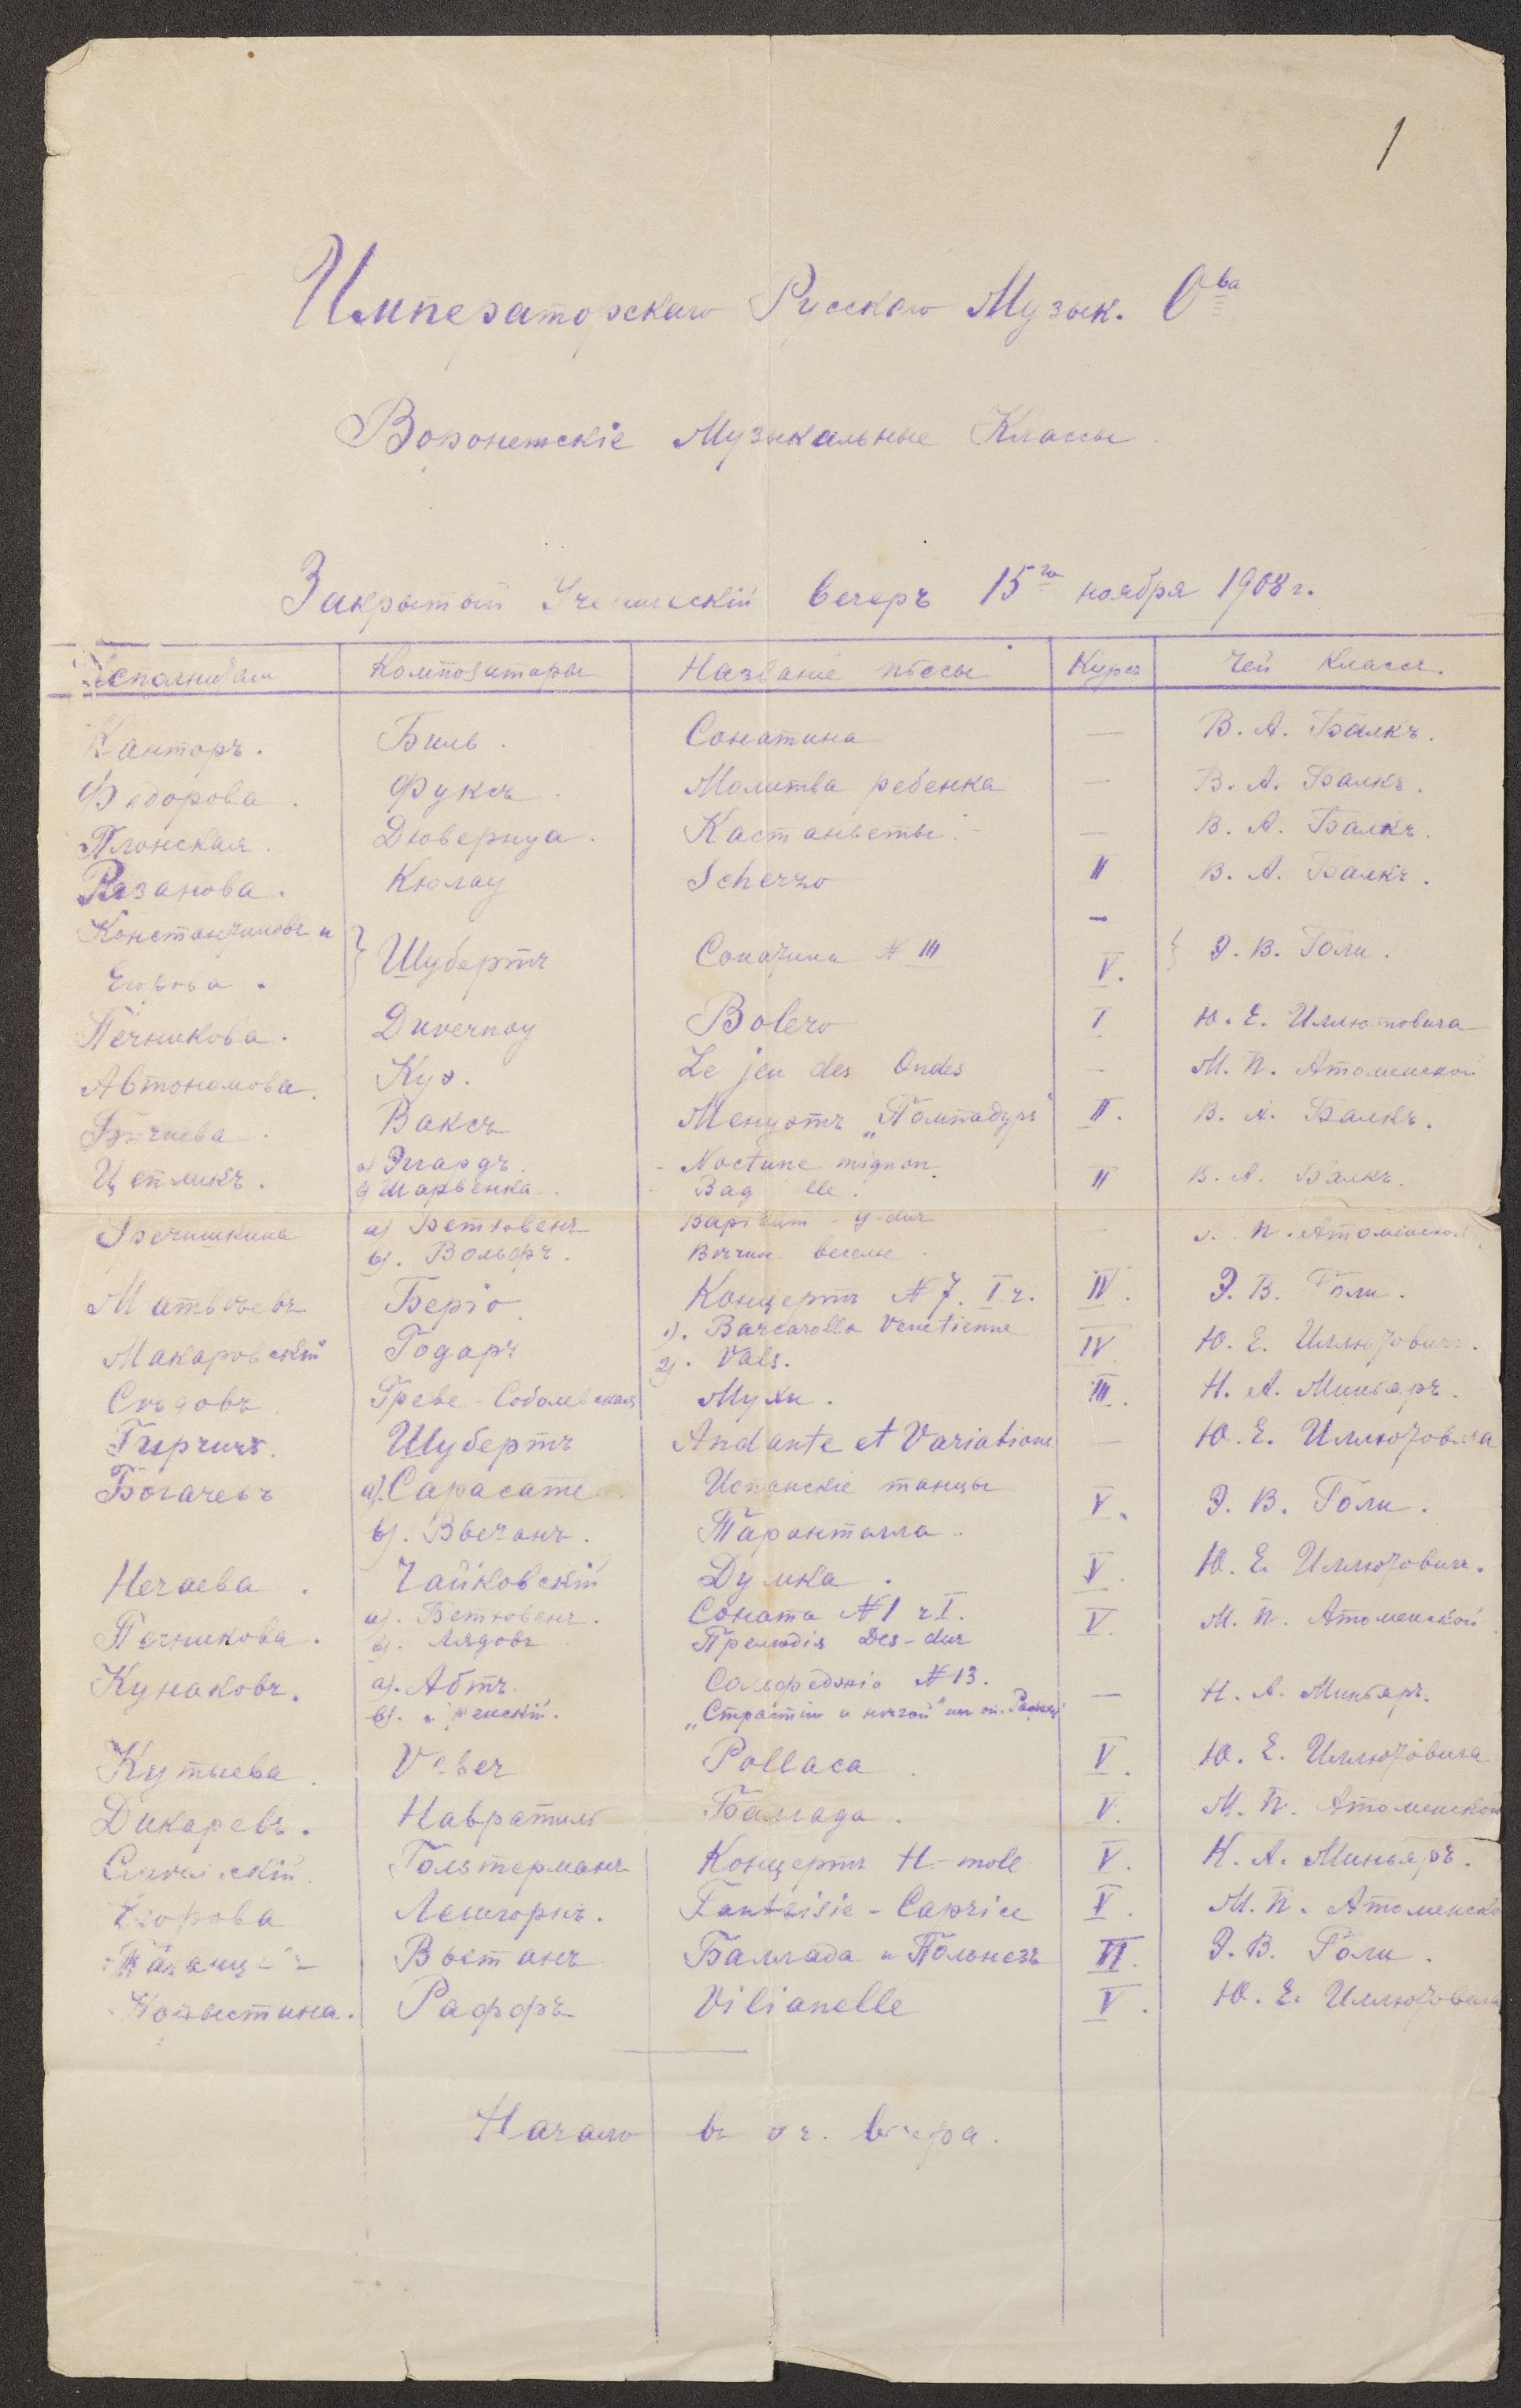 1
Императорскаго Русскаго Музык. О-ва
Воронежскіе Музыкальные Классы
Закрытый Ученическій вечеръ 15го ноября 1908 г.
Исполнители Композиторы Названіе пьесы Курсъ Чей Классъ.
Канторъ. Биль. Сонатина — В. А. Балкъ.
Федорова. Фуксъ. Молитва ребенка — В. А. Балкъ.
Плонская. Дювернуа. Кастаньеты. — В. А. Балкъ.
Рязанова. Кюлау Scherzo II В. А. Балкъ.
Константиновъ и —
Егорова. Шубертъ Сонатина № III V. Э. В. Голи.
Печникова. Duvernoy Bolero I Ю. Е. Иллютовича
Автономова. Куэ. Le jeu des Ondes — М. П. Атоменской
Ваксъ Менуэтъ „Помпадуръ" II. В. А. Балкъ.
Цепликъ. а) Эгардъ. Noctune mignon. II В. А. Балкъ.
Шарвенка.
Гречишкина а) Бетховенъ — П. Атоменской
в). Вольфъ. веселье.
Матвѣевъ Беріо. Концертъ № 7. I ч. IV. Э. В. Голи.
Макаровскій Годаръ 1). Barcarolla Venetienne IV Ю. Е. Иллютовича.
2). Vals.
Сѣдовъ Греве-Соболевская Мухи. III. Н. А. Миньяръ.
Гирчичъ. Шубертъ Andante et Variations — Ю. Е. Иллютовича
Богачевъ а). Сарасате Испанскіе танцы V. Э. В. Голи.
в). Тарантелла.
Нечаева. Чайковскій Думка. V. Ю. Е. Иллютовичъ.
Печникова. а). Бетховенъ. Соната № 1 ч I. V. М. П. Атоменской
в). Лядовъ Прелюдія Des-dur
Кунаковъ. а). Абтъ. Сольфеджіо № 13. — Н. А. Миньяръ.
в). „Страстью и нѣгой" из оп.
Кутыева. Veber Pollaca. V. Ю. Е. Иллютовича
Дикаревъ. Навратилъ Баллада. V. М. П. Атоменской
Гольтерманъ Концертъ H-mole V. Н. А. Миньяръ.
Лешгорнъ. Fantaisie-Caprice V. М. П. Атоменской
Вьетанъ Баллада и Полонезъ VI. Э. В. Голи.
Раффъ Vilianelle V. Ю. Е. Иллютовича
Начало въ ч. вечера.